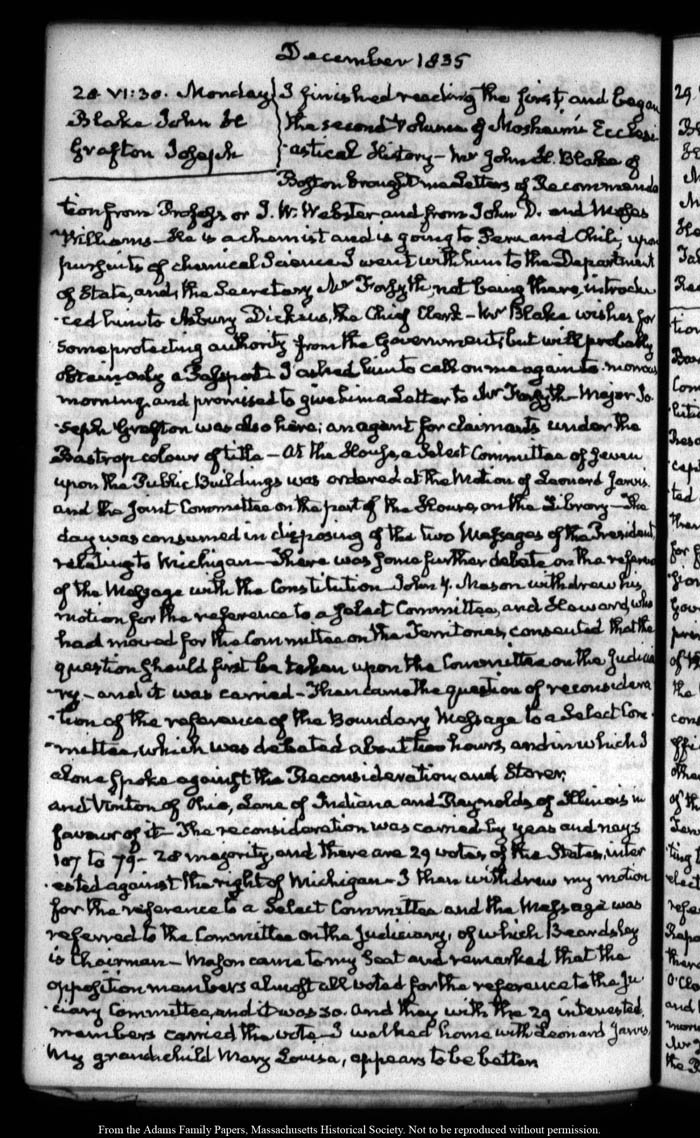 December 1835
28. VI:30. Monday
Blake John H
Grafton Joseph
I finished reading the first, and began
the second Volume of Mosheim's Ecclesi
astical History – Mr John H. Blake of
Boston brought me Letters of Recommenda
tion from Professor J. W. Webster and from John D. and Moses
Williams – He is a chemist and is going to Peru and Chili, upon
pursuits of chemical Science. I went with him to the Department
of State, and, the Secretary Mr Forsyth, not being there, introdu
ced him to Asbury Dickens, the Chief Clerk – Mr Blake wishes for
some protecting authority from the Government, but will probably
obtain only a Passport. I asked him to call on me again to-morrow
morning, and promised to give him a Letter to Mr Forsyth – Major Jo
seph Grafton was also here; an agent for claimants under the
Bastrop colour of title – At the House, a Select Committee of Seven
upon the Public Buildings was ordered at the Motion of Leonard Jarvis.
and the Joint Committee on the part of the House, on the Library – The
day was consumed in disposing of the two Messages of the President,
relating to Michigan – There was some further debate on the reference
of the Message with the Constitution – John Y. Mason withdrew his
motion for the reference to a Select Committee, and Howard, who
had moved for the Committee on the Territories, consented that the
question should first be taken upon the Committee on the Judicia
ry – and it was carried – Then came the question of reconsidera
tion of the reference of the Boundary Message to a Select Com
mittee, which was debated about two hours, and in which I
alone spoke against the Reconsideration, and Storer,
and Vinton of Ohio, Lane of Indiana and Reynolds of Illinois in
favour of it – The reconsideration was carried by yeas and nays
107 to 79 – 28 majority, and there are 29 votes, of the States, inter
ested against the right of Michigan – I then withdrew my motion
for the reference to a Select Committee and the Message was
referred to the Committee on the Judiciary, of which Beardsley
is Chairman – Mason came to my Seat and remarked that the
opposition members almost all voted for the reference to the Ju
ciary Committee, and it was so. And they with the 29 interested
members carried the vote. I walked home with Leonard Jarvis.
My grandchild Mary Louisa, appears to be better
From the Adams Family Papers, Massachusetts Historical Society. Not to be reproduced without permission.